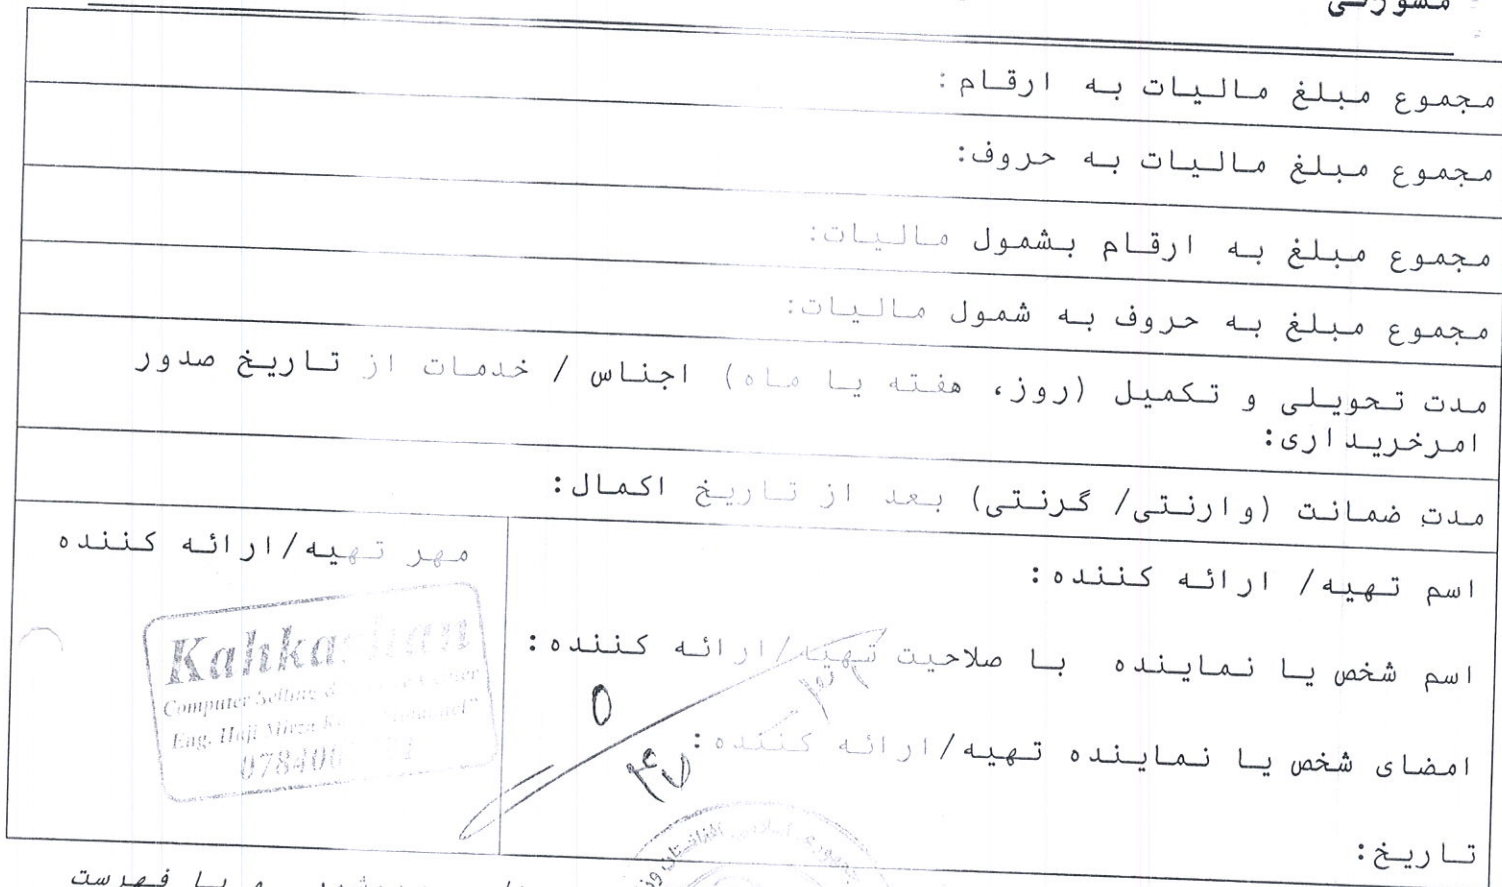 مشورتی
مجموع مبلغ مالیات به ارقام:
مجموع مبلغ مالیات به حروف:
مجموع مبلغ به ارقام بشمول مالیات:
مجموع مبلغ به حروف به شمول مالیات:
مدت تحویلی و تکمیل (روز، هفته یا ماه) اجناس / خدمات از تاریخ صدور
امرخریداری:
مدت ضمانت (وارنتی/ گرنتی) بعد از تاریخ اکمال:
اسم تهیه/ ارائه کننده:
اسم شخص یا نماینده با صلاحیت تهیه/ارائه کننده:
امضای شخص یا نماینده تهیه/ارائه کننده:
تاریخ:
مهر تهیه/ارائه کننده
Kahkashan
Computer Selling &
Eng. Haji Mirza
078400
با فهرست